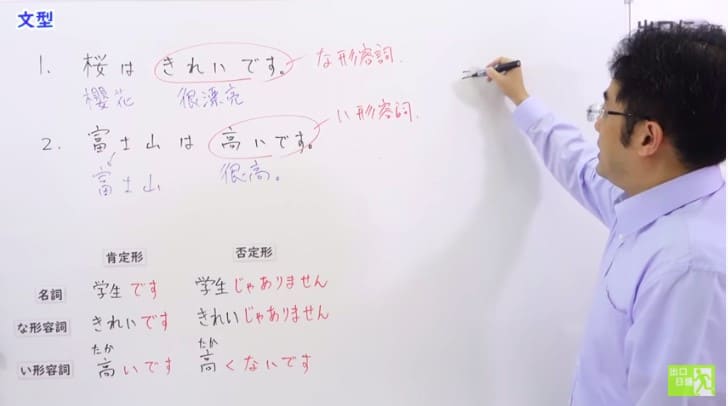 文型
1. 桜は きれいです。 な形容詞.
櫻花 很漂亮
2. 富士山は 高いです。 い形容詞.
富士山 很高。
肯定形 否定形
名詞 学生です 学生じゃありません
な形容詞 きれいです きれいじゃありません
たか たか
い形容詞 高いです 高くないです
出口
日語